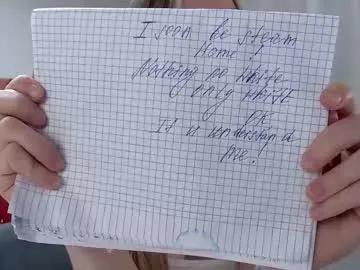 I soon be steam
Home!
Nothing no white
only white
OK
If u understand
me!